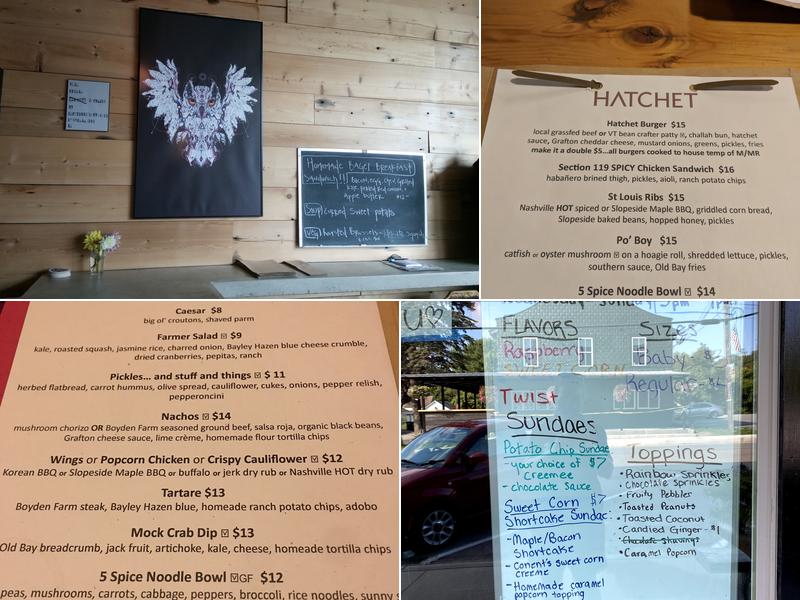 Homemade Bagel Breakfast
Sandwich!!
Bacon, egg,
apple butter
Soup
Curried Sweet potato
Veg
HATCHET
Hatchet Burger $15
local grassfed beef or VT bean crafter patty, challah bun, hatchet
sauce, Grafton cheddar cheese, mustard onions, greens, pickles, fries
make it a double $5...all burgers cooked to house temp of M/MR
Section 119 SPICY Chicken Sandwich $16
habañero brined thigh, pickles, aioli, ranch potato chips
St Louis Ribs $15
Nashville HOT spiced or Slopeside Maple BBQ, griddled corn bread,
Slopeside baked beans, hopped honey, pickles
Po' Boy $15
catfish or oyster mushroom on a hoagie roll, shredded lettuce, pickles,
southern sauce, Old Bay fries
5 Spice Noodle Bowl $14
Caesar $8
big ol' croutons, shaved parm
Farmer Salad $9
kale, roasted squash, jasmine rice, charred onion, Bayley Hazen blue cheese crumble,
dried cranberries, pepitas, ranch
Pickles... and stuff and things $ 11
herbed flatbread, carrot hummus, olive spread, cauliflower, cukes, onions, pepper relish,
pepperoncini
Nachos $14
mushroom chorizo OR Boyden Farm seasoned ground beef, salsa roja, organic black beans,
Grafton cheese sauce, lime crème, homemade flour tortilla chips
Wings or Popcorn Chicken or Crispy Cauliflower $12
Korean BBQ or Slopeside Maple BBQ or buffalo or jerk dry rub or Nashville HOT dry rub
Tartare $13
Boyden Farm steak, Bayley Hazen blue, homeade ranch potato chips, adobo
Mock Crab Dip $13
Old Bay breadcrumb, jack fruit, artichoke, kale, cheese, homeade tortilla chips
5 Spice Noodle Bowl GF $12
peas, mushrooms, carrots, cabbage, peppers, broccoli, rice noodles, sunny
U♡
FLAVORS
Raspberry
SWEET CORN
Twist
Sizes
Baby
Regular
Sundaes
Potato Chip Sundae
- your choice of $7
Creemee
- chocolate sauce
Sweet Corn $7
Shortcake Sundae:
- Maple/Bacon
Shortcake
- Conent's sweet corn
creeme
- Homemade caramel
popcorn topping
Toppings
• Rainbow Sprinkles
• Chocolate Sprinkles
• Fruity Pebbler
• Toasted Peanuts
• Toasted Coconut
• Candied Ginger - $1
• Chocolate Shavings
• Caramel Popcorn